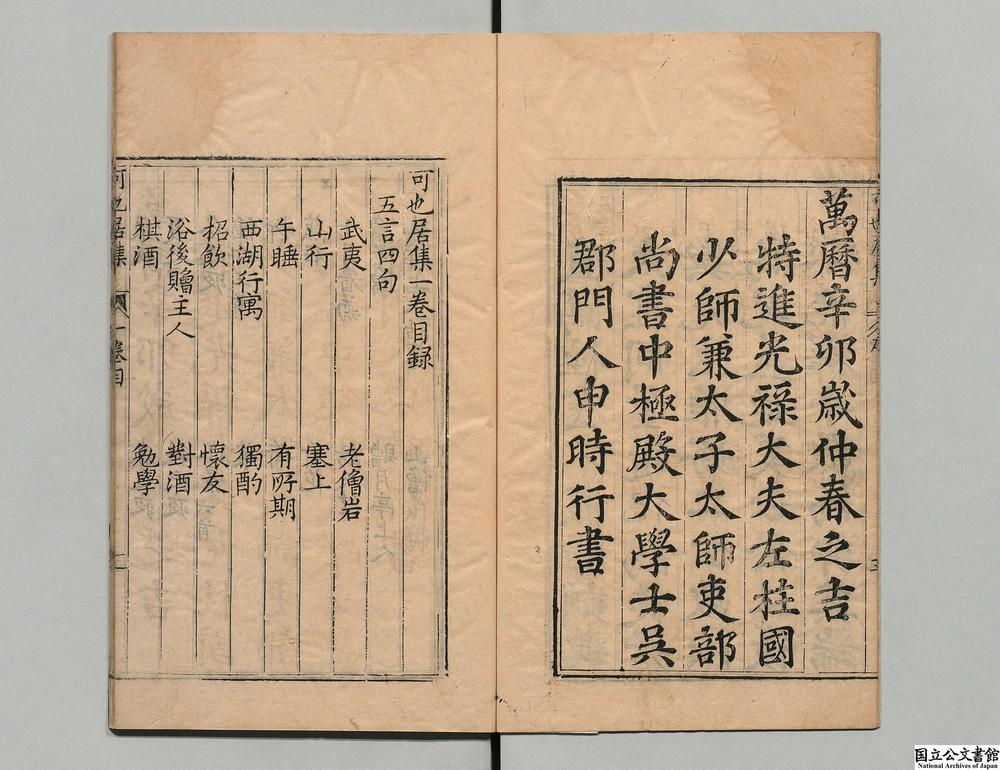 萬曆辛卯歲仲春之吉
特進光祿大夫左柱國
少師兼太子太師吏部
尚書中極殿大學士吳
郡門人申時行書
可也居集一卷目録
五言四句
武夷
老僧岩
山行
塞上
午睡
有所期
西湖行寓
獨酌
招飲
懷友
浴後贈主人
對酒
棋酒
勉學
可也居集
一卷目
一
国立公文書館
National Archives of Japan